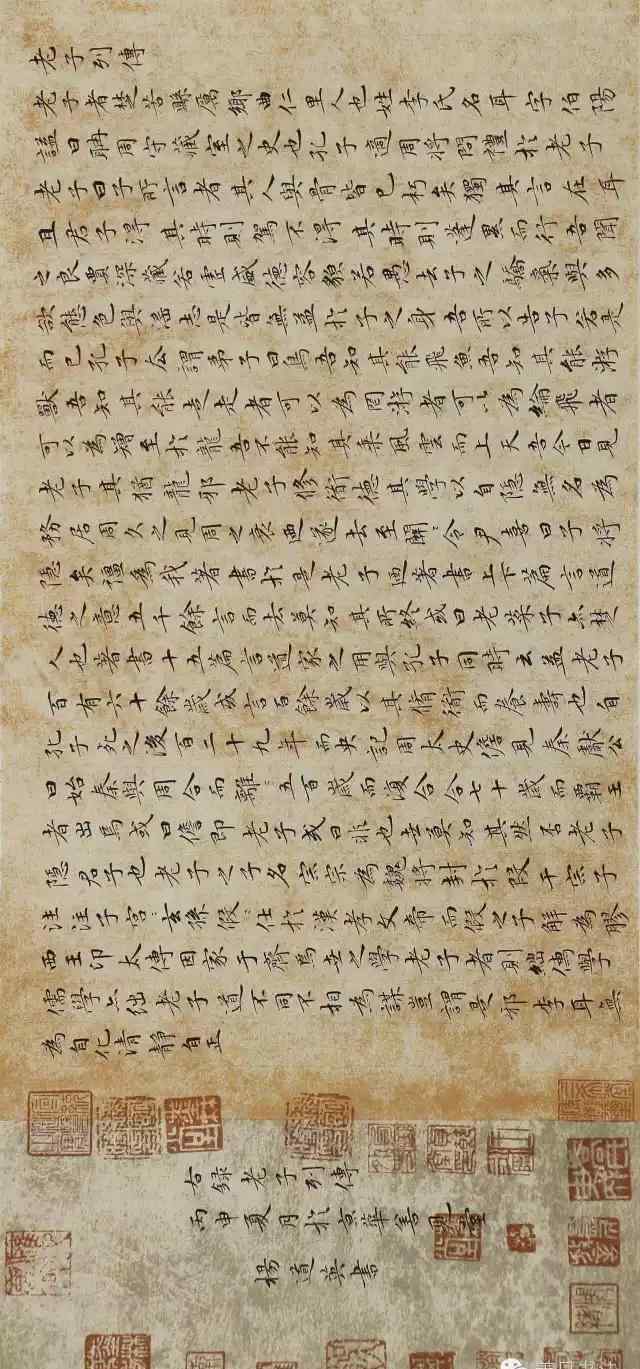 老子列傳
老子者楚苦縣厲鄉曲仁里人也姓李氏名耳字伯陽
謚曰聃周守藏室之史也孔子適周將問禮於老子
老子曰子所言者其人與骨皆已朽矣獨其言在耳
且君子得其時則駕不得其時則蓬累而行吾聞
之良賈深藏若虛盛德容貌若愚去子之驕氣與多
欲態色與淫志是皆無益於子之身吾所以告子若是
而已孔子去謂弟子曰鳥吾知其能飛魚吾知其能游
獸吾知其能走走者可以為罔游者可以為綸飛者
可以為矰至於龍吾不能知其乘風雲而上天吾今日見
老子其猶龍邪老子修衜德其學以自隱無名為
務居周久之見周之衰迺遂去至關〻令尹喜曰子將
隱矣彊為我著書於是老子迺著書上下篇言道
德之意五千餘言而去莫知其所終或曰老萊子亦楚
人也著書十五篇言道家之用與孔子同時云蓋老子
百有六十餘歲或言百餘歲以其脩衜而養壽也自
孔子死之後百二十九年而史記周太史儋見秦獻公
曰始秦與周合而離〻五百歲而復合合七十歲而霸王
者出焉或曰儋即老子或曰非也世莫知其然否老子
隱君子也老子之子名宗宗為魏將封於段干宗子
注注子宮〻玄孫假〻仕於漢孝文帝而假之子解為膠
西王卬太傅因家于齊焉世之學老子者則絀儒學
儒學亦絀老子道不同不相為謀豈謂是邪李耳無
為自化清靜自正
右錄老子列傳
丙申夏月於京華善見臺
楊道英書